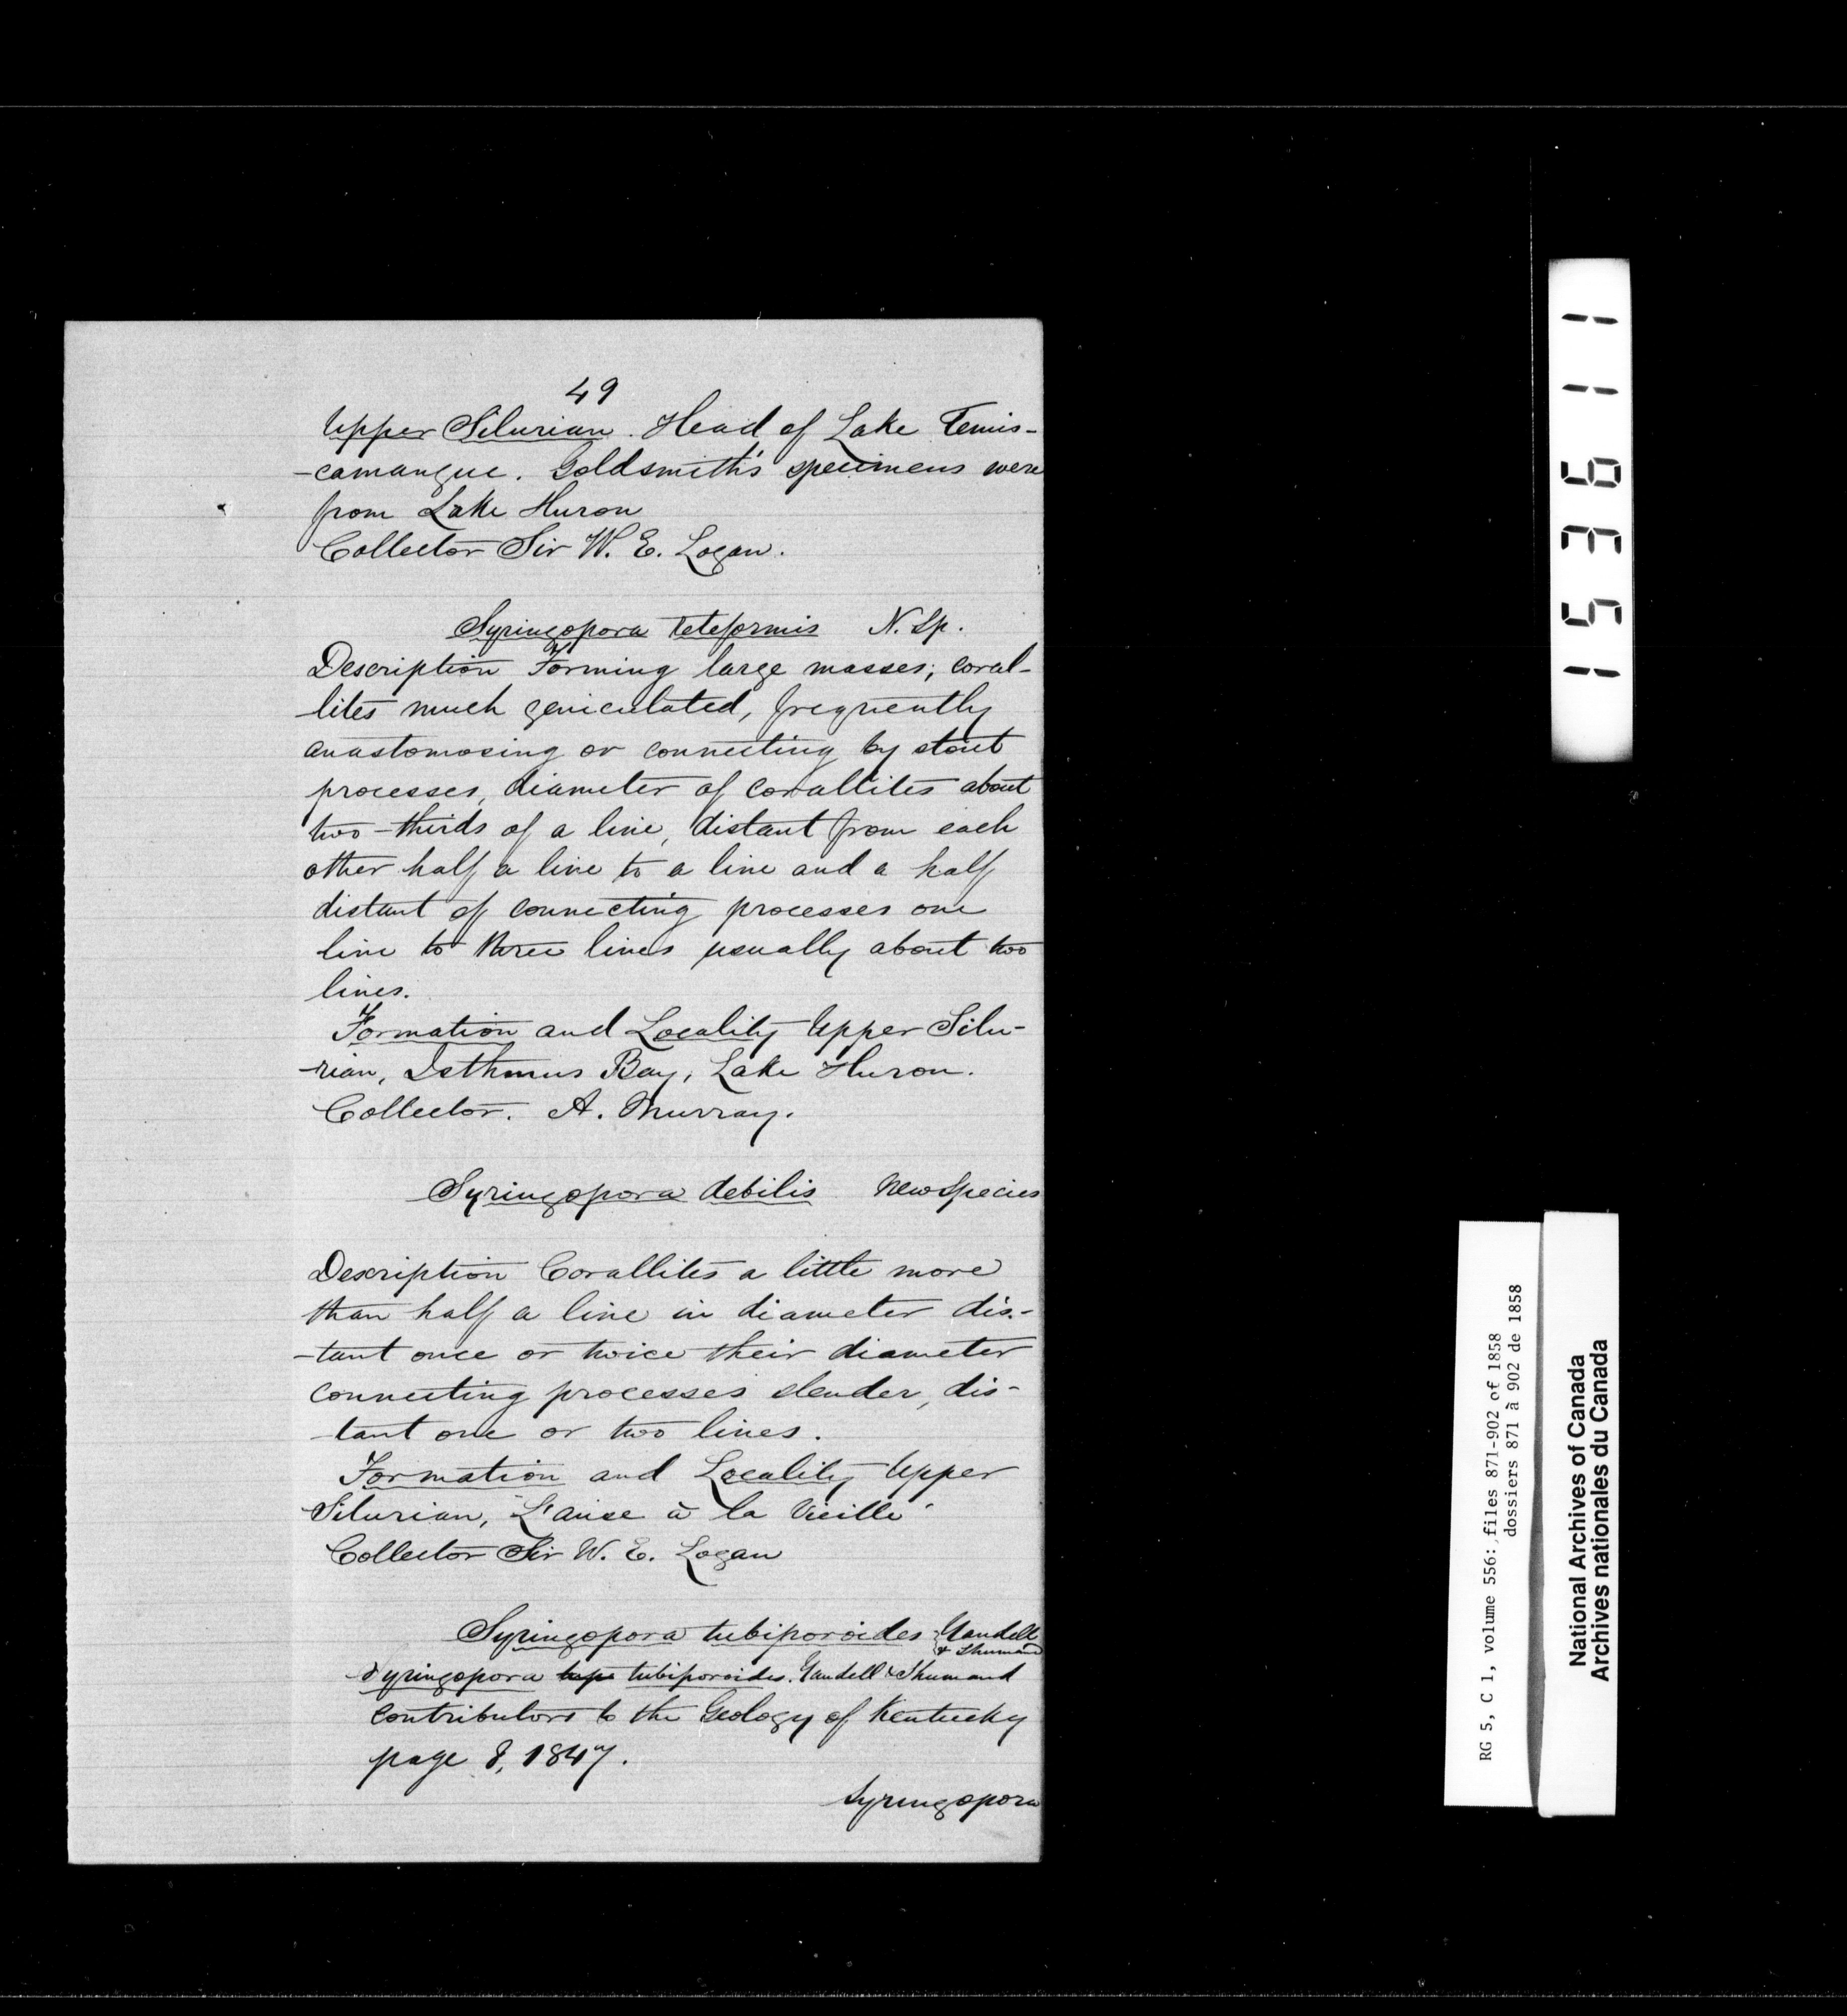 49
Upper Silurian. Head of Lake Temis-
-camangue. Goldsmith's specimens were
from Lake Huron
Collector Sir W. E. Logan.
Syringopora reteformis N. Sp.
Description Forming large masses; coral-
-lites much geniculated, frequently
anastomosing or connecting by stout
processes, diameter of corallites about
two-thirds of a line, distant from each
other half a line to a line and a half
distant of connecting processes one
line to three lines usually about two
lines.
Formation and Locality Upper Silu-
-rian, Isthmus Bay, Lake Huron.
Collector. A. Murray.
Syringopora debilis New Species
Description Corallites a little more
than half a line in diameter dis-
-tant once or twice their diameter
connecting processes slender, dis-
-tant one or two lines.
Formation and Locality Upper
Silurian, L'anse à la Vieille
Collector Sir W. E. Logan
Syringopora tubiporoides Yandell
& Shumard
Syringopora tubiporoides. Yandell & Shumard
Contributions to the Geology of Kentucky
page 8, 1847.
Syringopora
153611
RG 5, C 1, volume 556: files 871-902 of 1858
dossiers 871 à 902 de 1858
National Archives of Canada
Archives nationales du Canada